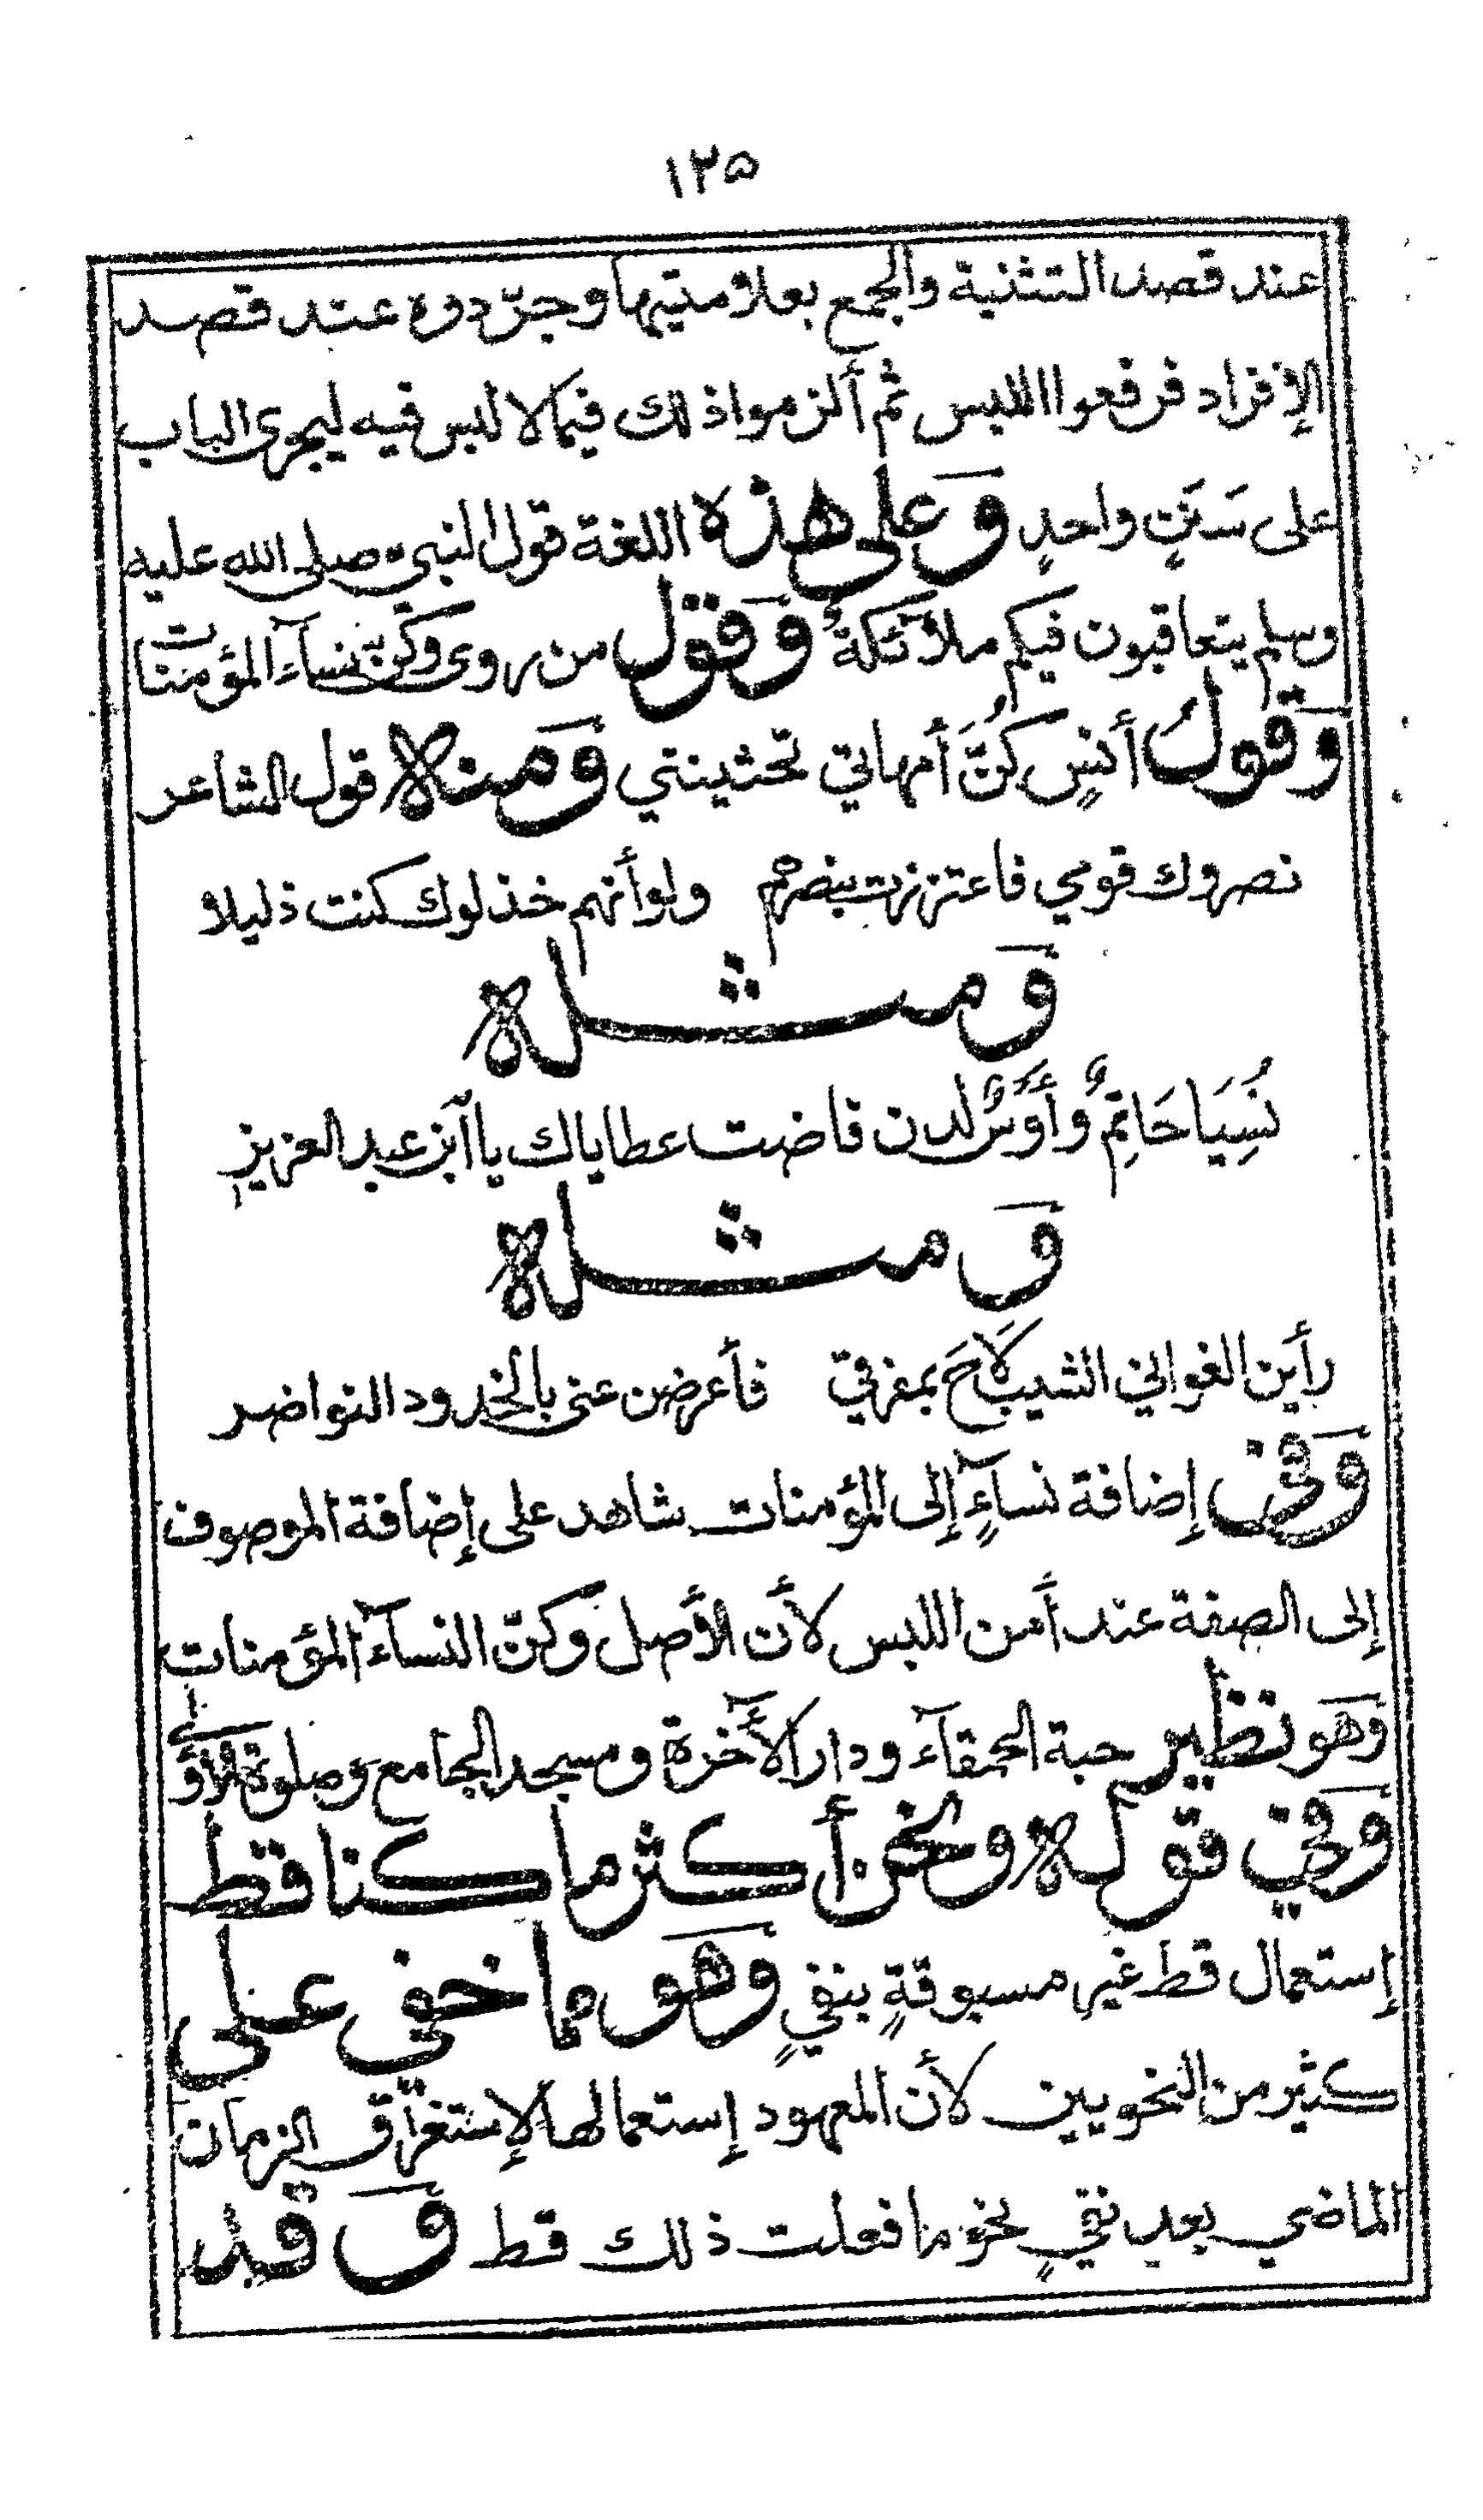 ١٢٥
عند قصد التثنية والجمع بعلامتيهما وجرّدوه عند قصد
الإفراد فرفعوا اللبس ثم ألزموا ذلك فيما لا لبس فيه ليجرى الباب
على سَنَنٍ واحدٍ وَعلى هذه اللغة قول النبى صلى الله عليه
وسلم يتعاقبون فيكم ملائكةٌ وَقول من روى وكنّ نساء المؤمنات
وَقول أنسٍ كنَّ أمهاتي تحثينني وَمنه قول الشاعر
نصروك قومي فاعتززت بنصرهم ولو أنهم خذلوك كنت ذليلا
وَمثله
نُسِيَا حَاتِمٌ وأَوسٌ لدن فاضت عطاياك يا ابن عبد العزيز
وَمثله
رأين الغواني الشيب لَاحَ بمفرقي فأعرضن عنى بالخدود النواضر
وَفي إضافة نساءٍ إلى المؤمنات شاهد على إضافة الموصوف
إلى الصفة عند أمن اللبس لأن الأصل وكنّ النساء المؤمنات
وَهو نظير حبة الحمقاء ودار الآخرة ومسجد الجامع وصلوة الأولى
وَفي قوله ونحن أكثر ما كنا قط
إستعمال قط غير مسبوقةٍ بنفيٍ وَهو مما خفي على
كثير من النحويين لأن المعهود إستعمالها لإستغراق الزمان
الماضي بعد نفيٍ نحو ما فعلت ذلك قط وَقد